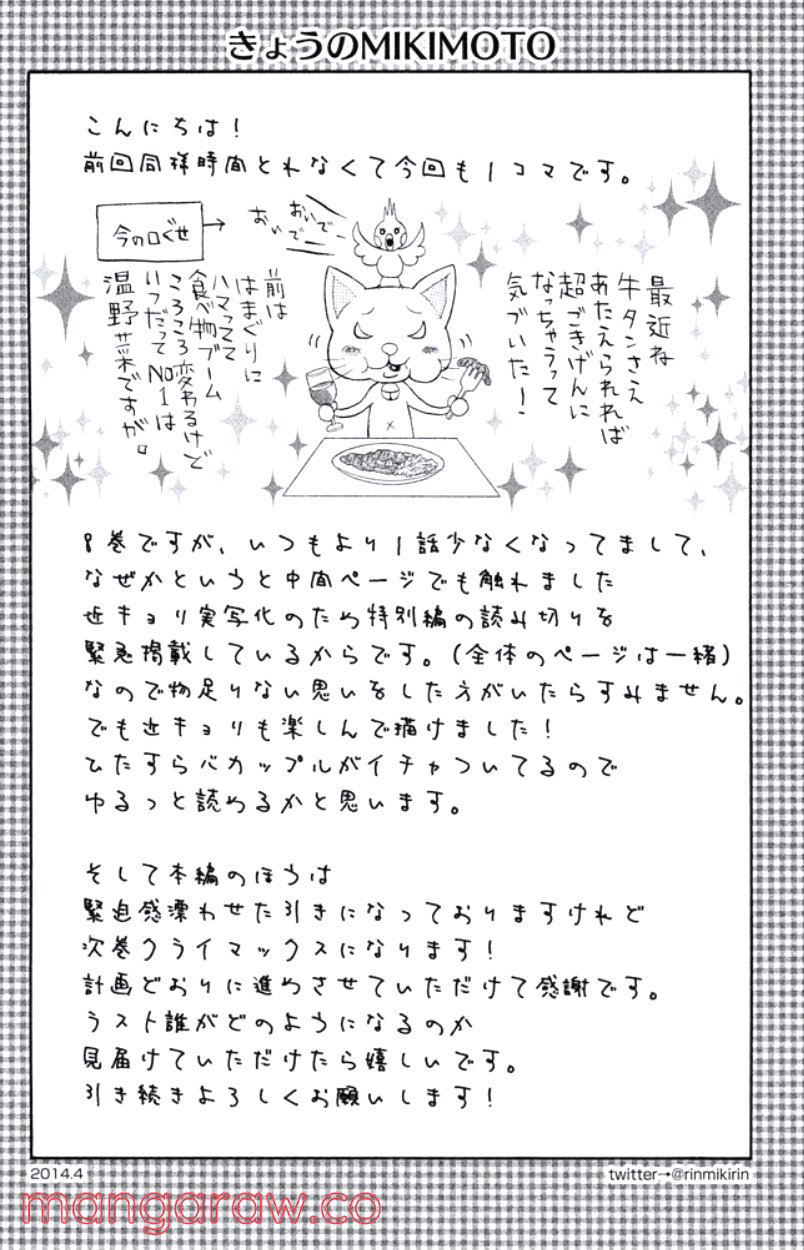 きょうのMIKIMOTO
こんにちは!
前回同様時間とれなくて今回も1コマです。
最近ね
牛タンさえ
あたえられれば
超ごきげんに
なっちゃうって
気づいた!
おいで
おいでー
今の口ぐせ→
前は
はまぐりに
ハマってて
食べ物ブーム
ころころ変わるけど
いつだってNo1は
温野菜ですが。
8巻ですが、いつもより1話少なくなってまして、
なぜかというと中間ページでも触れました
近キョリ実写化のため特別編の読み切りを
緊急掲載しているからです。(全体のページは一緒)
なので物足りない思いをした方がいたらすみません。
でも近キョリも楽しんで描けました!
ひたすらバカップルがイチャついてるので
ゆるっと読めるかと思います。
そして本編のほうは
緊迫感漂わせた引きになっておりますけれど
次巻クライマックスになります!
計画どおりに進めさせていただけて感謝です。
ラスト誰がどのようになるのか
見届けていただけたら嬉しいです。
引き続きよろしくお願いします!
2014.4
twitter→@rinmikirin
mangaraw.co